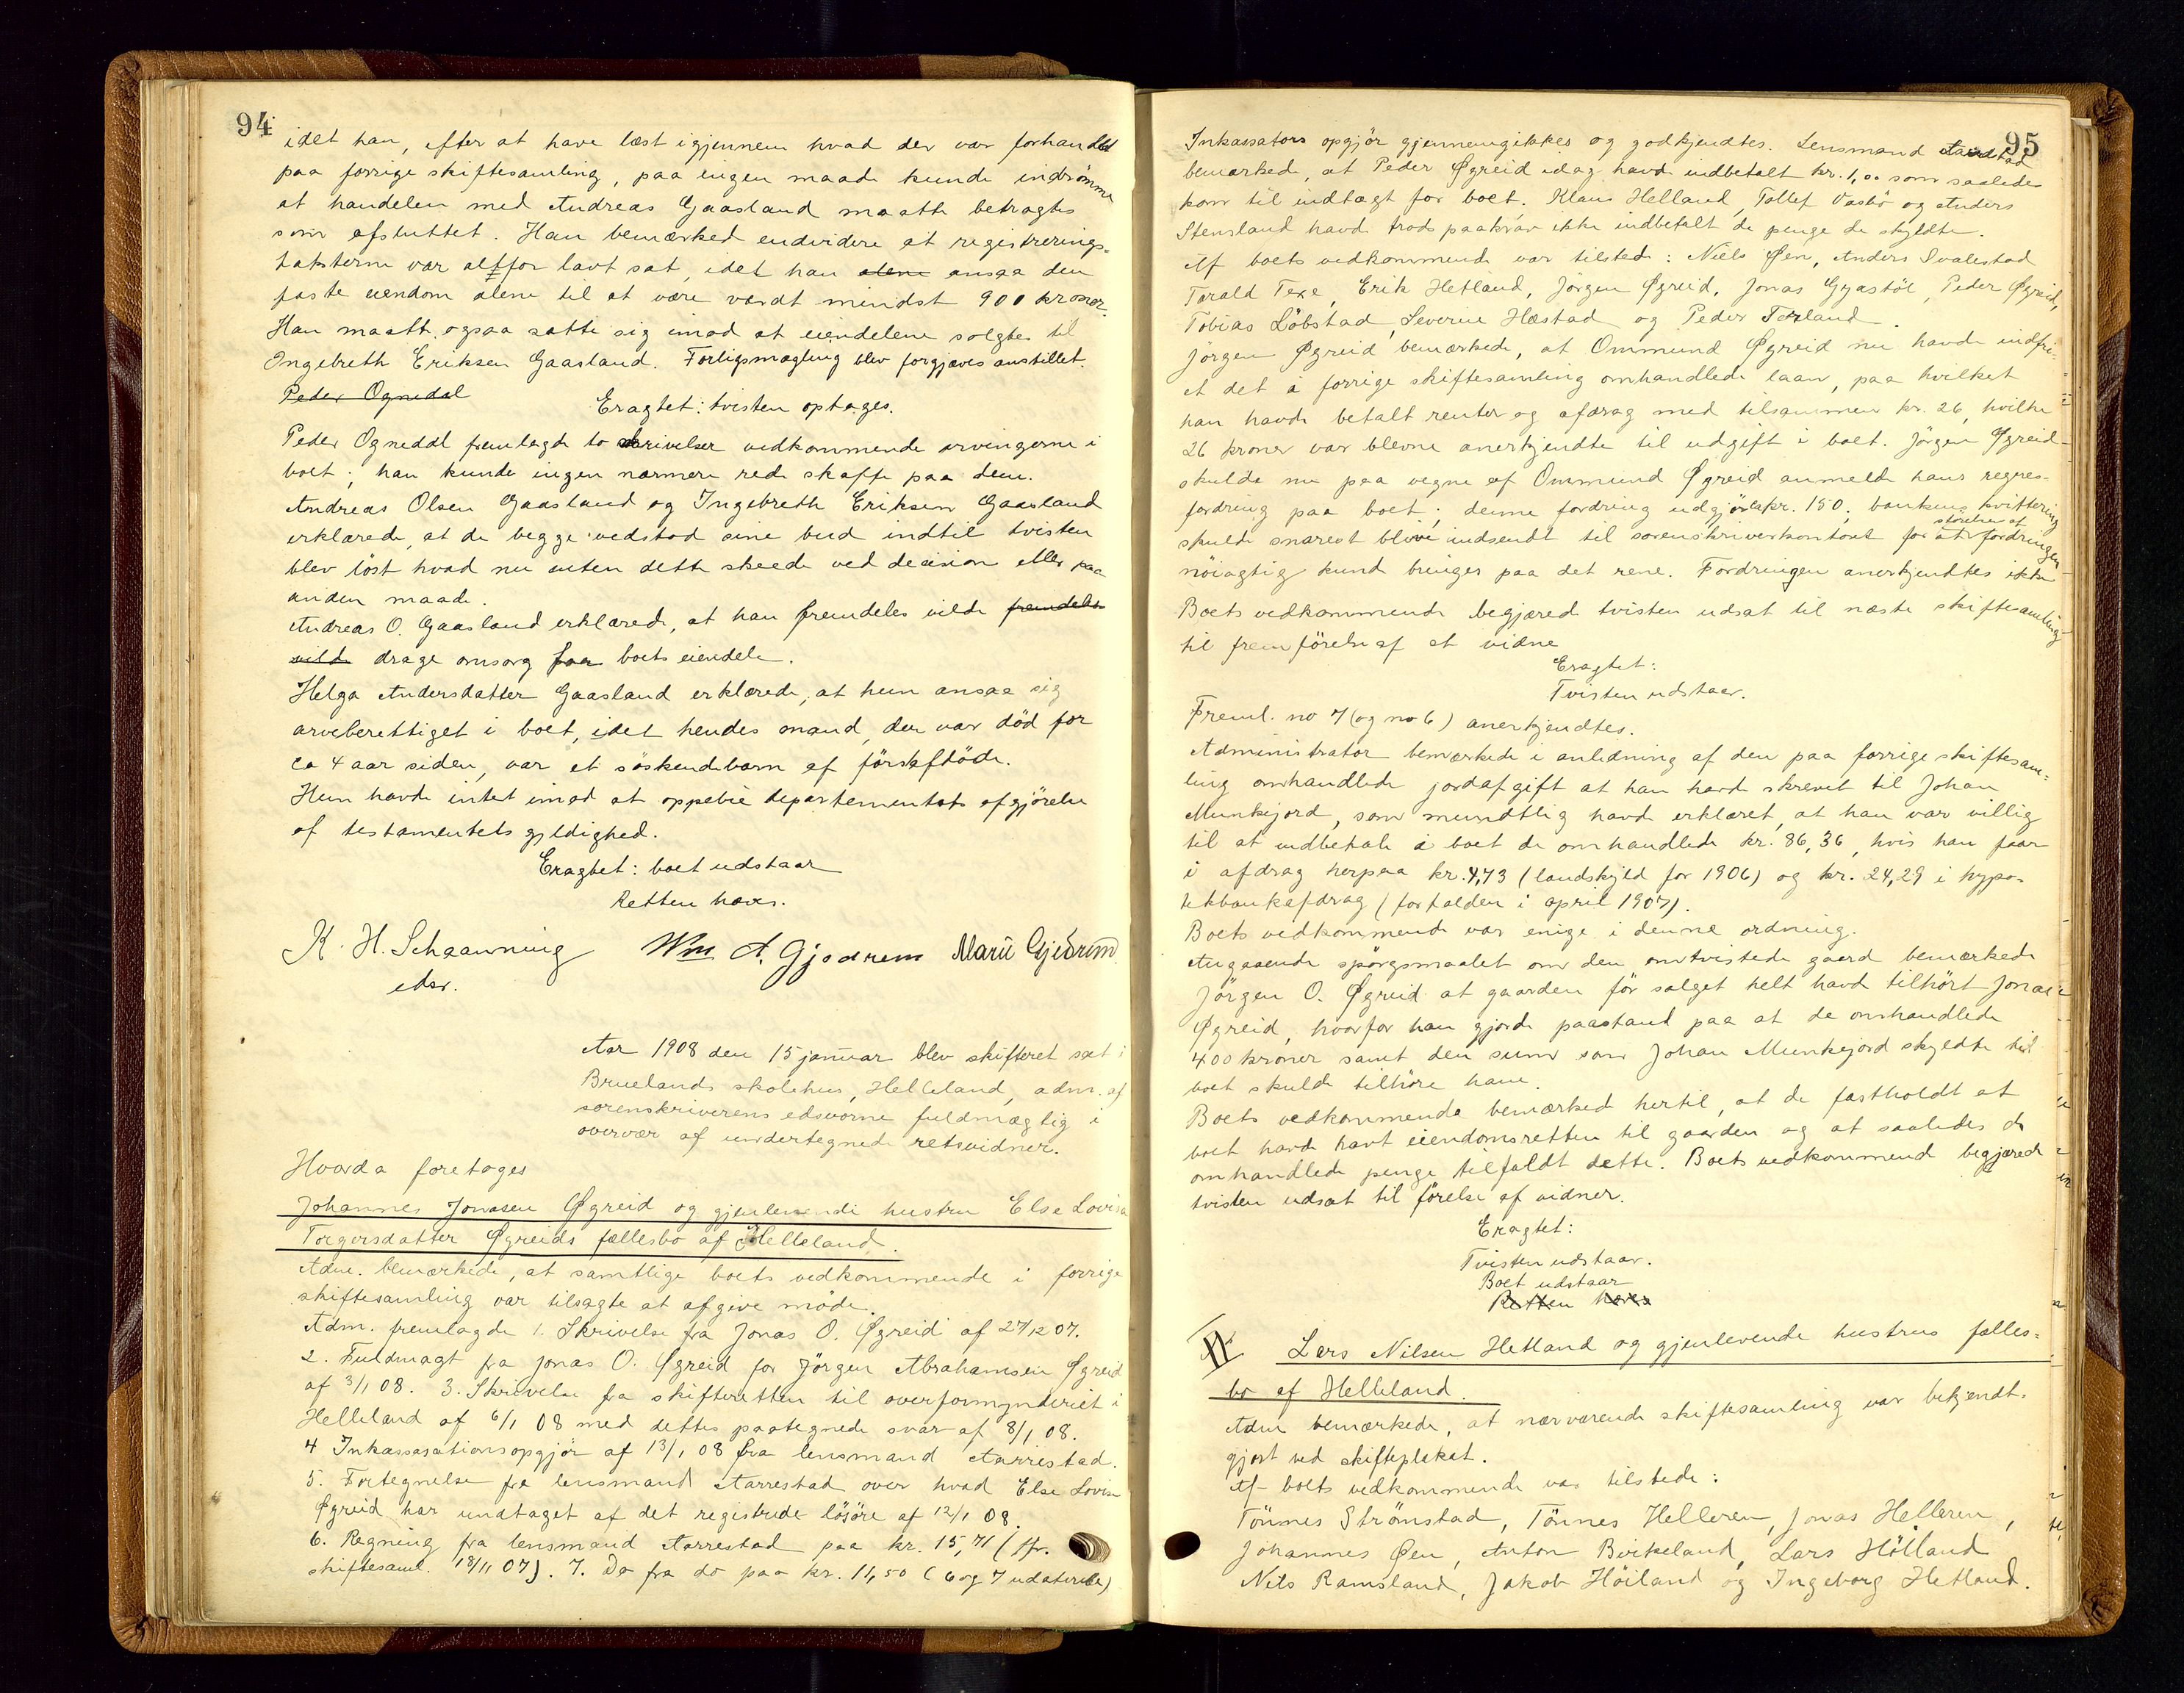 94
idet han, efter at have læst igjennem hvad der var forhandlet
paa forrige skiftesamling, paa ingen maade kunde indrømme
at handelen med Andreas Gaasland maatte betragtes
som afsluttet. Han bemærked endvidere at registrerings-
taksterne var altfor lavt sat, idet han alene ansaa den
faste eiendom alene til at være værdt mindst 900 kroner.
Han maatte ogsaa sætte sig imod at eiendelene solgtes til
Ingebreth Eriksen Gaasland. Forligsmægling blev forgjæves anstillet.
Peder Ognedal
Eragtet: tvisten optages.
Peder Ognedal fremlagde to skrivelser vedkommende arvingerne i
boet; han kunde ingen nærmere rede skaffe paa dem.
Andreas Olsen Gaasland og Ingebreth Eriksen Gaasland
erklærede, at de begge vedstod sine bud indtil tvisten
blev løst hvad nu enten dette skeede ved decision eller paa
anden maade.
Andreas O. Gaasland erklærede, at han fremdeles vilde fremdeles
vilde drage omsorg for boets eiendele.
Helga Andersdatter Gaasland erklærede, at hun ansaa sig
arveberettiget i boet, idet hendes mand, der var död for
ca 4 aar siden, var et söskendebarn af förstafdöde.
Hun havde intet imod at oppebie departementets afgjörelse
af testamentets gyldighed.
Eragtet: boet udstaar
Retten hæves.
K. H. Schaanning Wm A. Gjedrem Marie Gjedrem
edsv.
Aar 1908 den 15 januar blev skifteret sat i
Bruelands skolehus, Helleland, adm. af
sorenskriverens edsvorne fuldmægtig i
overvær af undertegnede retsvidner.
Hvorda foretages
Johannes Jonasen Øgreid og gjenlevende hustru Else Lovisa
Torgersdatter Øgreids fællesbo af Helleland.
Adm. bemærkede, at samtlige boets vedkommende i forrige
skiftesamling var tilsagte at afgive möde.
Adm. fremlagde 1. Skrivelse fra Jonas O. Øgreid af 27/12 07.
2. Fuldmagt fra Jonas O. Øgreid for Jörgen Abrahamsen Øgreid
af 3/1 08. 3. Skrivelse fra skifteretten til overformynderiet i
Helleland af 6/1 08 med dettes paategnede svar af 8/1 08.
4 Inkassasationsopgjör af 13/1 08 fra lensmand Aarrestad.
5. Fortegnelse fra lensmand Aarrestad over hvad Else Lovise
Øgreid har undtaget af det registrerede lösöre af 12/1 08.
6. Regning fra lensmand Aarrestad paa kr. 15,71 (jfr.
skiftesaml. 18/11 07). 7. Do fra do paa kr. 11,50 (6 og 7 udaterede)
95
Inkassators opgjör gjennemgikkes og godkjendtes. Lensmand Aarrestad
bemærkede, at Peder Øgreid idag havde indbetalt kr. 1,00 som saaledes
kom til indtægt for boet. Klaus Helland, Tollef Vasbö og Anders
Stensland havde trods paakrav ikke indbetalt de penge de skyldte.
Af boets vedkommende var tilstede: Niels Øen, Anders Svalestad
Torald Texe, Erik Hetland, Jörgen Øgreid, Jonas Gyastöl, Peder Øgreid,
Tobias Löbstad, Severine Hæstad og Peder Terland.
Jörgen Øgreid bemærkede, at Ommund Øgreid nu havde indfri-
et det i forrige skiftesamling omhandlede laan, paa hvilket
han havde betalt renter og afdrag med tilsammen kr. 26, hvilke
26 kroner var blevne anerkjendte til udgift i boet. Jörgen Øgreid
skulde nu paa vegne af Ommund Øgreid anmelde hans regres-
fordring paa boet; denne fordring udgjör kr. 150; bankens kvittering
skulde snarest blive indsendt til sorenskriverkontoret for at størrelsen af fordringen
nöiagtig kunde bringes paa det rene. Fordringen anerkjendtes ikke
Boets vedkommende begjæred tvisten udsat til næste skiftesamling
til fremförelse af et vidne
Eragtet:
Tvisten udstaar.
Freml. no 7 (og no 6) anerkjendtes.
Administrator bemærkede i anledning af den paa forrige skiftesam-
ling omhandlede jordafgift at han havde skrevet til Johan
Munkejord, som mundtlig havde erklæret, at han var villig
til at indbetale i boet de omhandlede kr. 86,36, hvis han faar
i afdrag herpaa kr. 4,73 (landskyld for 1906) og kr. 24,29 i hypo-
tekbankafdrag (forfalden i april 1907).
Boets vedkommende var enige i denne ordning.
Angaaende spörgsmaalet om den omtvistede gaard bemærkede
Jörgen O. Øgreid at gaarden för salget helt havde tilhört Jonas
Øgreid, hvorfor han gjorde paastand paa at de omhandlede
400 kroner samt den sum som Johan Munkejord skyldte til
boet skulde tilhöre ham.
Boets vedkommende bemærked hertil, at de fastholdt at
boet havde havt eiendomsretten til gaarden og at saaledes de
omhandlede penge tilfaldt dette. Boets vedkommende begjærede
tvisten udsat til förelse af vidner.
Eragtet:
Tvisten udstaar.
Boet udstaar
Retten hæves
II
Lars Nilsen Hetland og gjenlevende hustrus fælles-
bo af Helleland.
Adm bemærkede, at nærværende skiftesamling var bekjendt-
gjort ved skifteplakat.
Af boets vedkommende var tilstede:
Tönnes Strömstad, Tönnes Helleren, Jonas Helleren,
Johannes Øen, Anton Birkeland, Lars Hölland
Nels Ramsland, Jakob Höiland og Ingeborg Hetland.